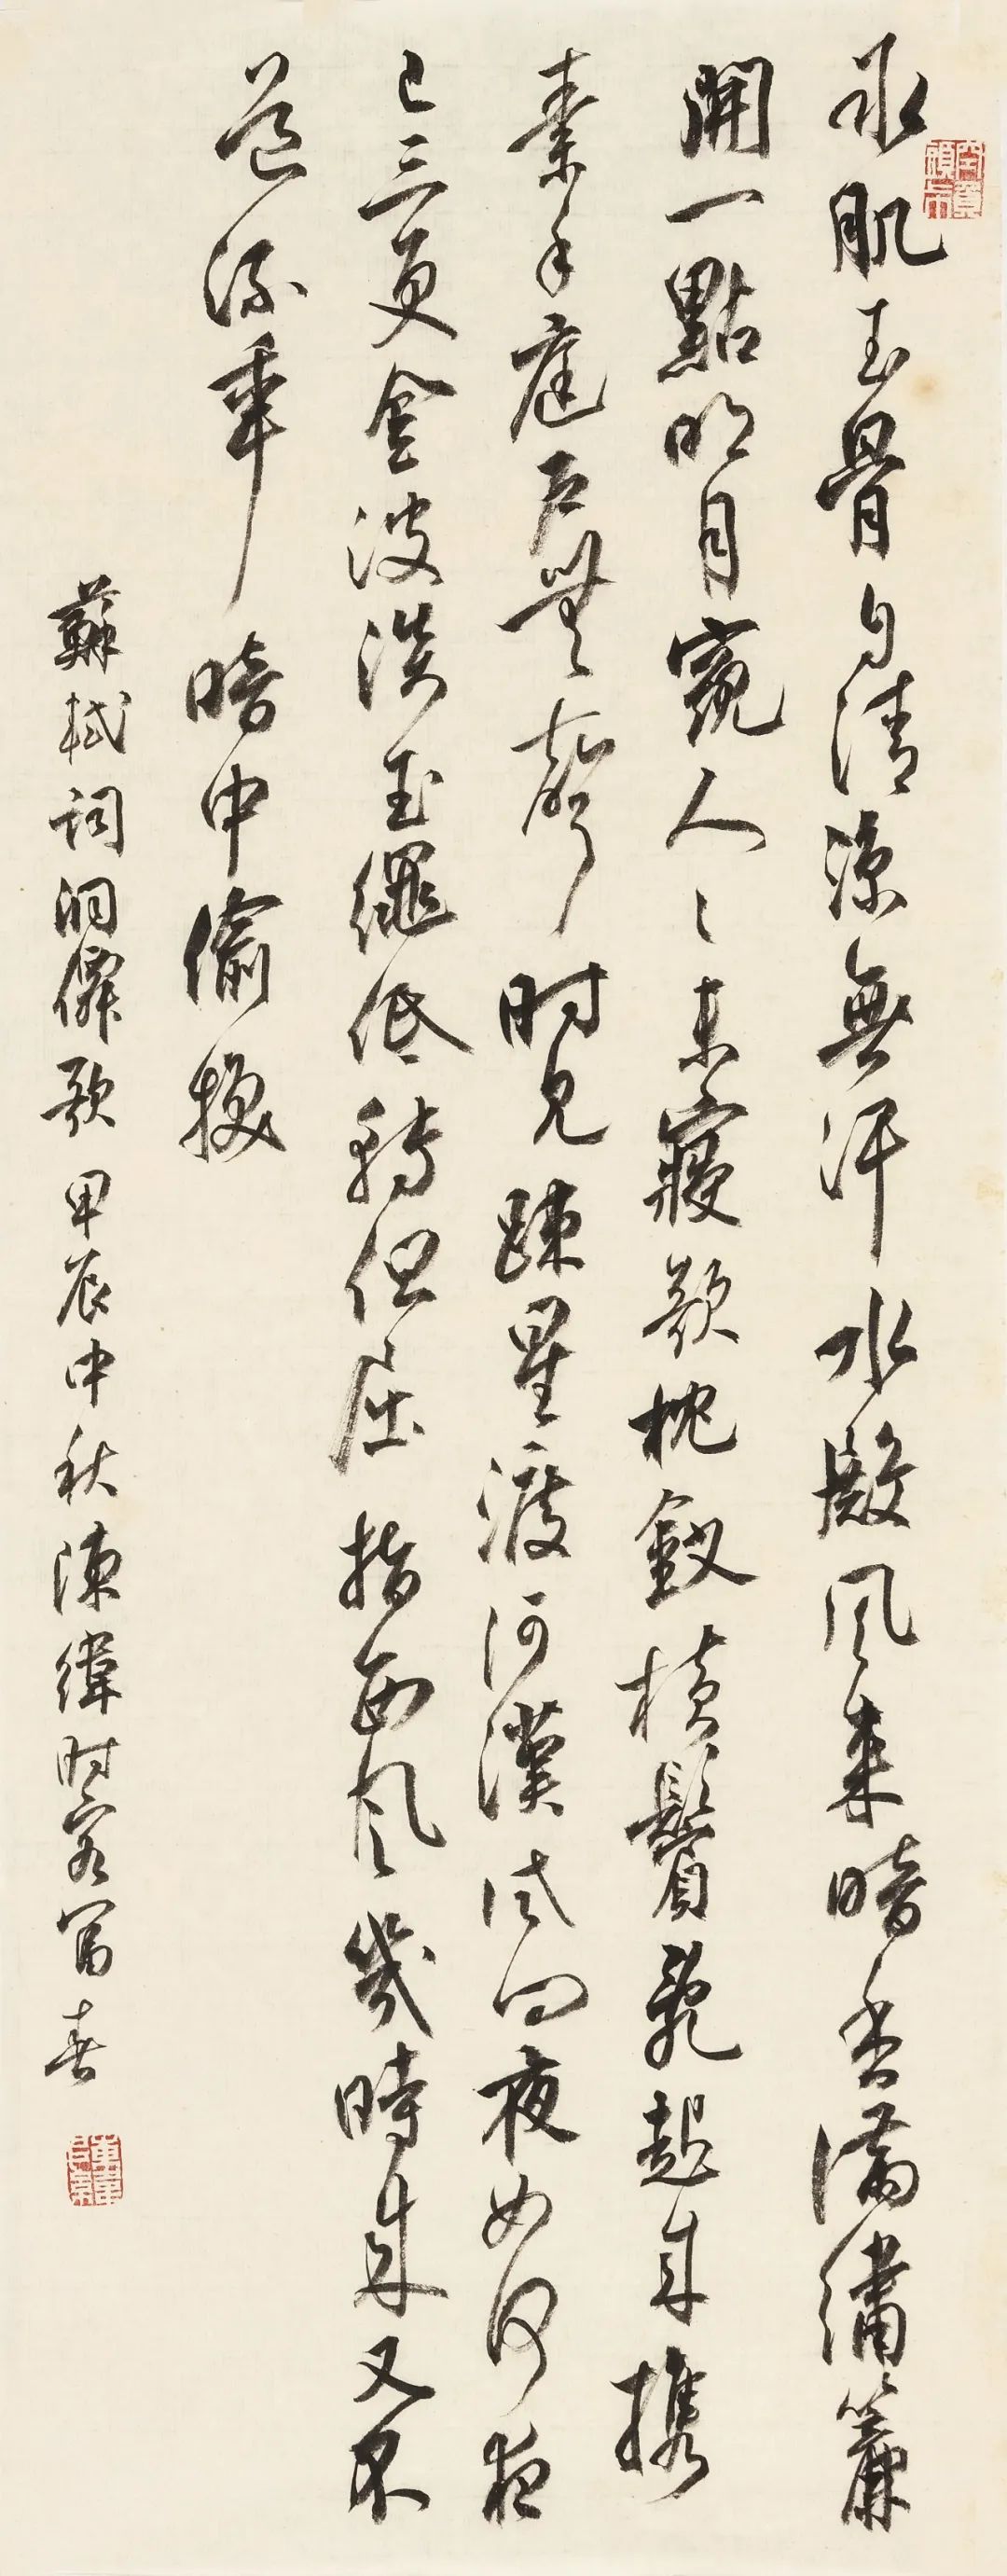 冰肌玉骨自清涼無汗水殿風來暗香滿繡簾
開一點明月窺人〻未寢欹枕釵橫鬢亂起來攜
素手庭戶無聲時見疎星渡河漢試問夜如何夜
已三更金波淡玉繩低轉但屈指西風幾時來又不
道流年暗中偷換
蘇軾詞洞僊歌甲辰中秋陳緯時客富春